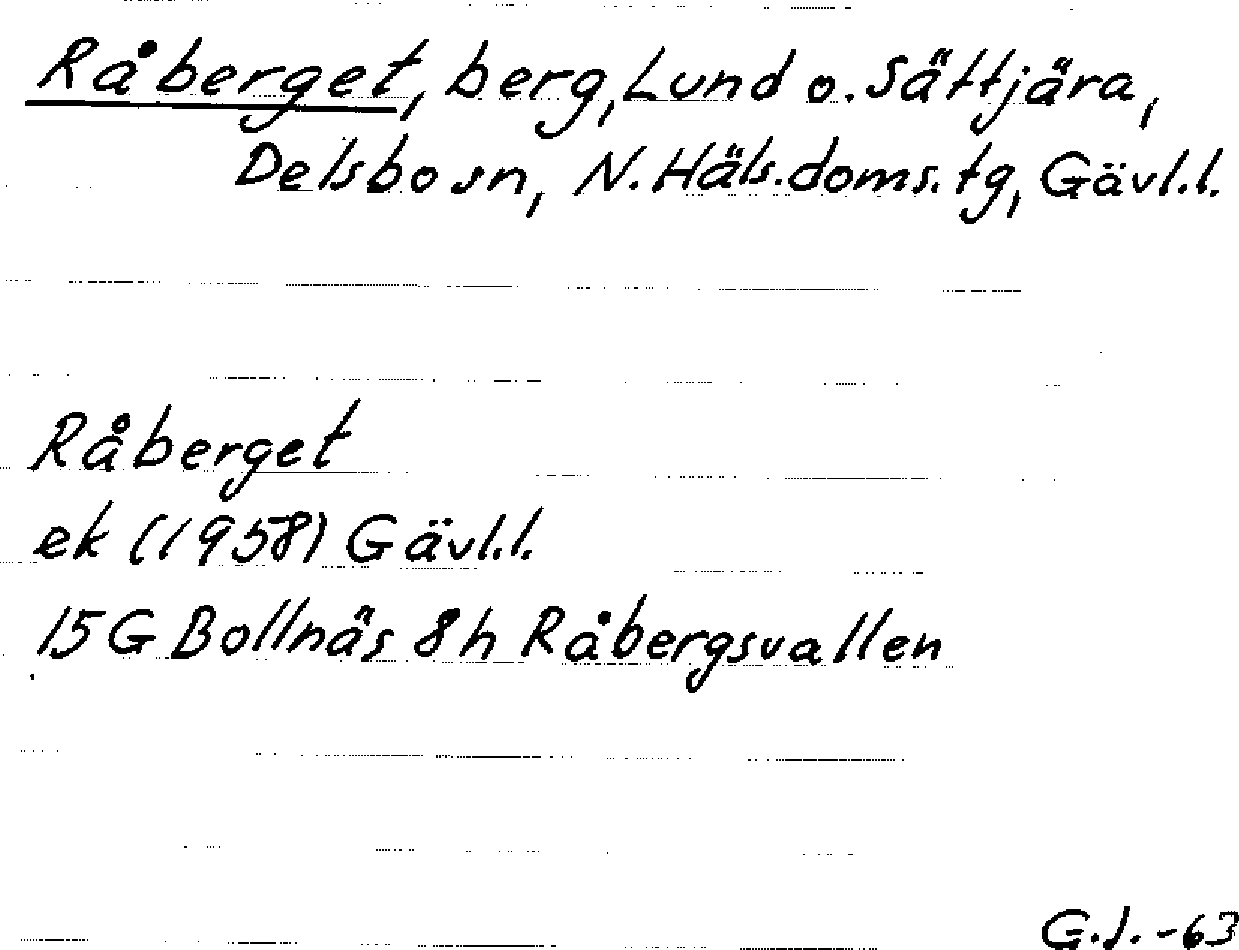 Råberget, berg, Lund o. Sättjära,
Delsbo sn, N. Häls. doms. tg, Gävl.l.
Råberget
ek (1958) Gävl.l.
15G Bollnäs 8h Råbergsvallen
G.J. -63